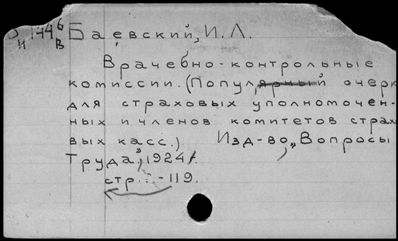 1446 Баевский, И. Л.
11 в
Врачебно-контрольные
комиссии. (Популярный очерк
для страховых уполномочен-
ных и членов комитетов страхо
вых касс.) Изд-во „Вопросы
Труда", 1924 г.
стр. -119.